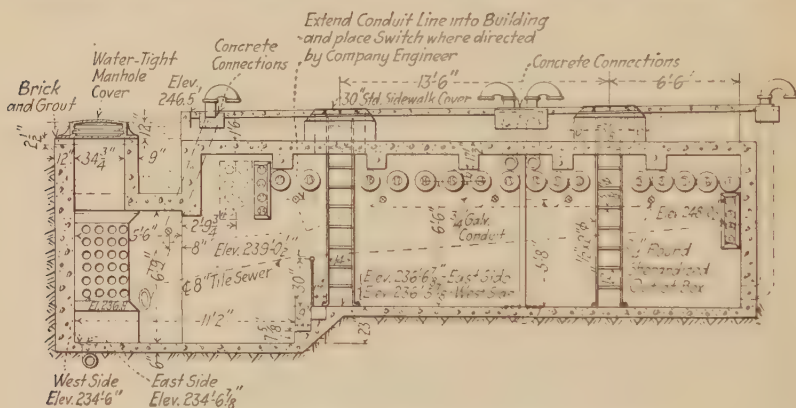 Extend Conduit Line into Building
and place Switch where directed
by Company Engineer
Water-Tight
Manhole
Cover
Concrete
Connections
Concrete Connections
Brick
and Grout
Elev.
246.5'
13'-6"
6'-6"
30" Std. Sidewalk Cover
12"
12"
34 3/4"
9"
1'-6"
5'-6"
2'-9 3/4"
8"
Elev. 239'-0 1/2"
6'-6"
3/4" Galv.
Conduit
5'-8"
Round
Outlet Box
℄ 8" Tile Sewer
30"
Elev. 236'-6 7/8" - East Side
- West Side
El. 236.8
11'-2"
7 5/8"
23
6"
West Side
Elev. 234'-6"
East Side
Elev. 234'-6 7/8"